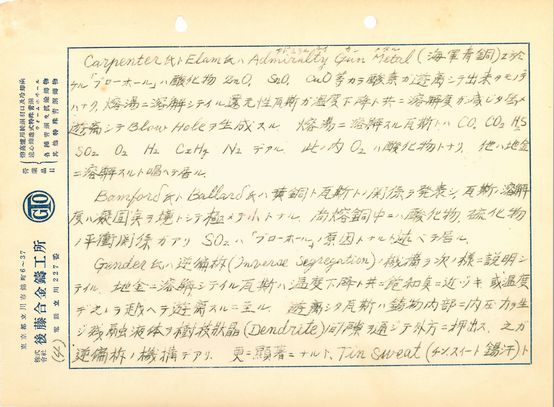 Carpenter氏トElam氏ハAdmiralty Gun Metal(海軍青銅)ニ於
ケル「ブローホール」ハ酸化物 ZnO, SnO, CuO等カラ酸素ガ遊離シテ出来タモノデ
ハナク, 熔湯ニ溶解シテイル還元性瓦斯ガ温度下降ト共ニ溶解度ガ減ジ
遊離シテBlow Holeヲ生成スル. 熔湯ニ溶解スル瓦斯トハCO, CO2, H2S
SO2 O2 H2 CxHy N2 デアル. 此ノ内O2ハ酸化物トナリ, 他ハ地金
ニ溶解スルト唱ヘテ居ル.
Bamford氏トBallard氏ハ黄銅ト瓦斯トノ関係ヲ発表シ, 瓦斯ノ溶解
度ハ凝固点ヲ境トシテ極メテ小トナル. 尚熔銅中ニハ酸化物, 硫化物
ノ平衡関係ガアリ SO2ハ「ブローホール」ノ原因トナルト述ベテ居ル.
Gender氏ハ逆偏析(Inverse Segregation)ノ機構ヲ次ノ様ニ説明シ
テイル. 地金ニ溶解シテイル瓦斯ハ温度下降ト共ニ飽和点ニ近ヅキ 或温度
ヲ越ヘテ遊離スルニ至ル. 遊離シタ瓦斯ハ鋳物内部ニ内圧力ヲ生
ジ残融液体ヲ樹枝状晶(Dendrite)ノ間隙ヲ通シテ外方ニ押出ス. 之ガ
逆偏析ノ機構デアリ. 更ニ顕著ニナルト, Tin Sweat(チンスイート 錫汗)ト
営業品目
各種青銅丸鋳造物
其他特殊青銅鋳物
GTO
株式会社 後藤合金鋳工所
東京都立川市錦町6~37
電話立川227番
(4)